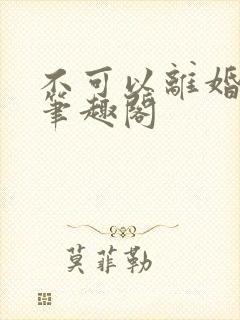 不可以離婚
筆趣閣
莫菲勒